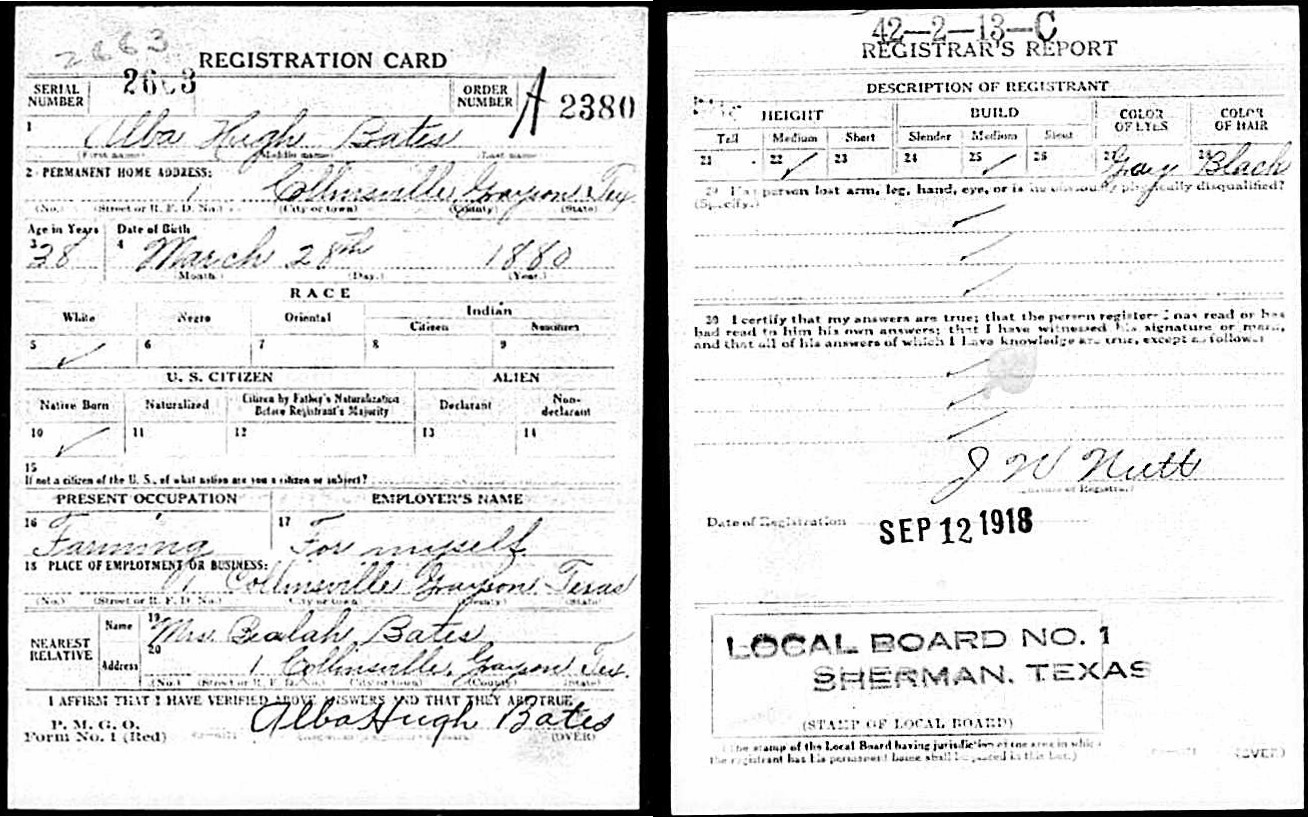 2663
REGISTRATION CARD
SERIAL NUMBER 2663 ORDER NUMBER A 2380
1 Alba Hugh Bates
(First name) (Middle name) (Last name)
2 PERMANENT HOME ADDRESS:
1 Collinsville Grayson Tex
(No.) (Street or R. F. D. No.) (City or town) (County) (State)
Age in Years Date of Birth
3 38 4 March 28th 1880
(Month.) (Day.) (Year.)
RACE
White Negro Oriental Indian
Citizen Noncitizen
5 ✓ 6 7 8 9
U. S. CITIZEN ALIEN
Native Born Naturalized Citizen by Father's Naturalization Before Registrant's Majority Declarant Non-declarant
10 ✓ 11 12 13 14
15
If not a citizen of the U. S., of what nation are you a citizen or subject?
PRESENT OCCUPATION EMPLOYER'S NAME
16 Farming 17 For myself
18 PLACE OF EMPLOYMENT OR BUSINESS:
1 Collinsville Grayson Texas
(No.) (Street or R. F. D. No.) (City or town) (County) (State)
NEAREST RELATIVE Name 19 Mrs. Bealah Bates
Address 20 1 Collinsville, Grayson Tex.
(No.) (Street or R. F. D. No.) (City or town) (County) (State)
I AFFIRM THAT I HAVE VERIFIED ABOVE ANSWERS AND THAT THEY ARE TRUE
P. M. G. O.
Form No. 1 (Red) Alba Hugh Bates
(OVER)
42-2-13-C
REGISTRAR'S REPORT
DESCRIPTION OF REGISTRANT
HEIGHT BUILD COLOR OF EYES COLOR OF HAIR
Tall Medium Short Slender Medium Stout
21 22 ✓ 23 24 25 ✓ 26 27 Gray 28 Black
29 Has person lost arm, leg, hand, eye, or is he obviously physically disqualified?
(Specify.)
30 I certify that my answers are true; that the person registered has read or has
had read to him his own answers; that I have witnessed his signature or mark,
and that all of his answers of which I have knowledge are true, except as follows:
J W Nutt
(Signature of Registrar)
Date of Registration SEP 12 1918
LOCAL BOARD NO. 1
SHERMAN, TEXAS
(STAMP OF LOCAL BOARD)
(The stamp of the Local Board having jurisdiction of the area in which
the registrant has his permanent home shall be placed in this box.)
(OVER)